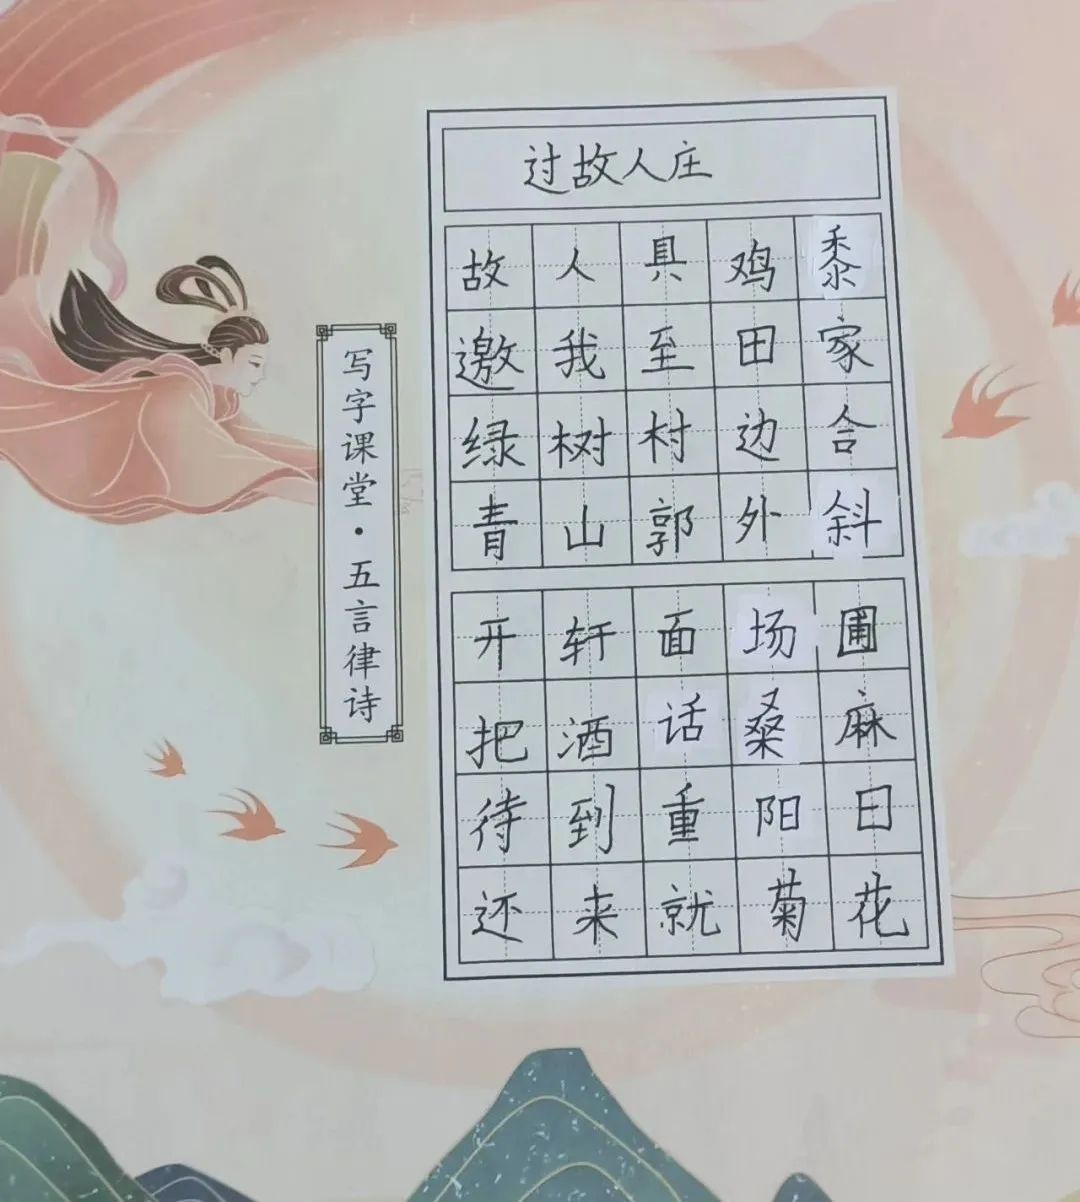 过故人庄
故人具鸡黍
邀我至田家
绿树村边合
青山郭外斜
开轩面场圃
把酒话桑麻
待到重阳日
还来就菊花
写字课堂·五言律诗